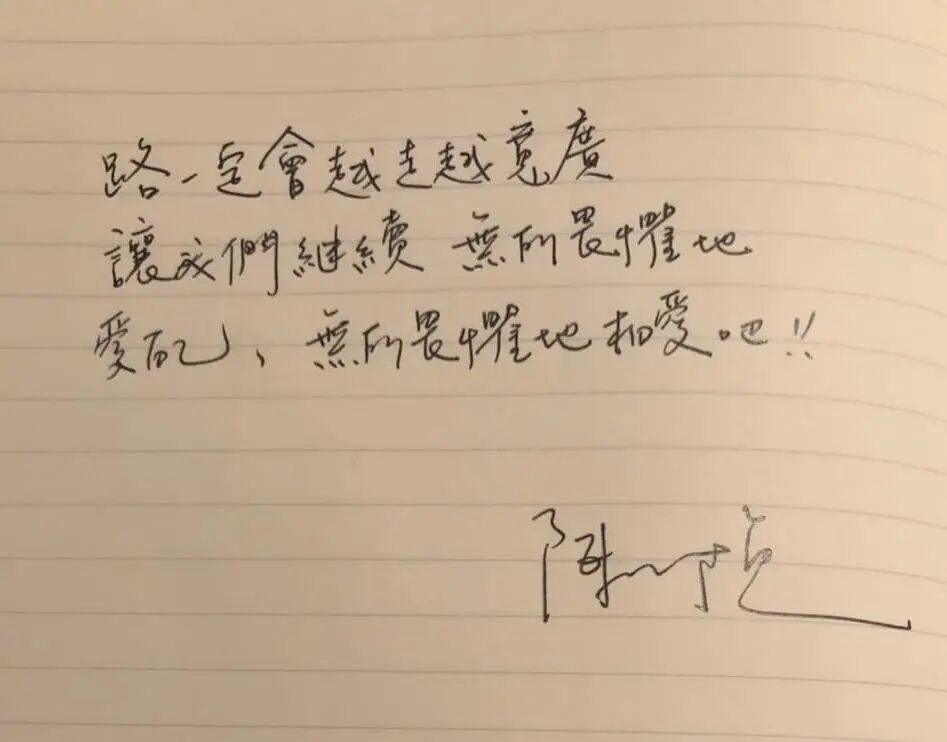 路一定會越走越寬廣
讓我們繼續 無所畏懼地
愛自己，無所畏懼地相愛吧!!
陳